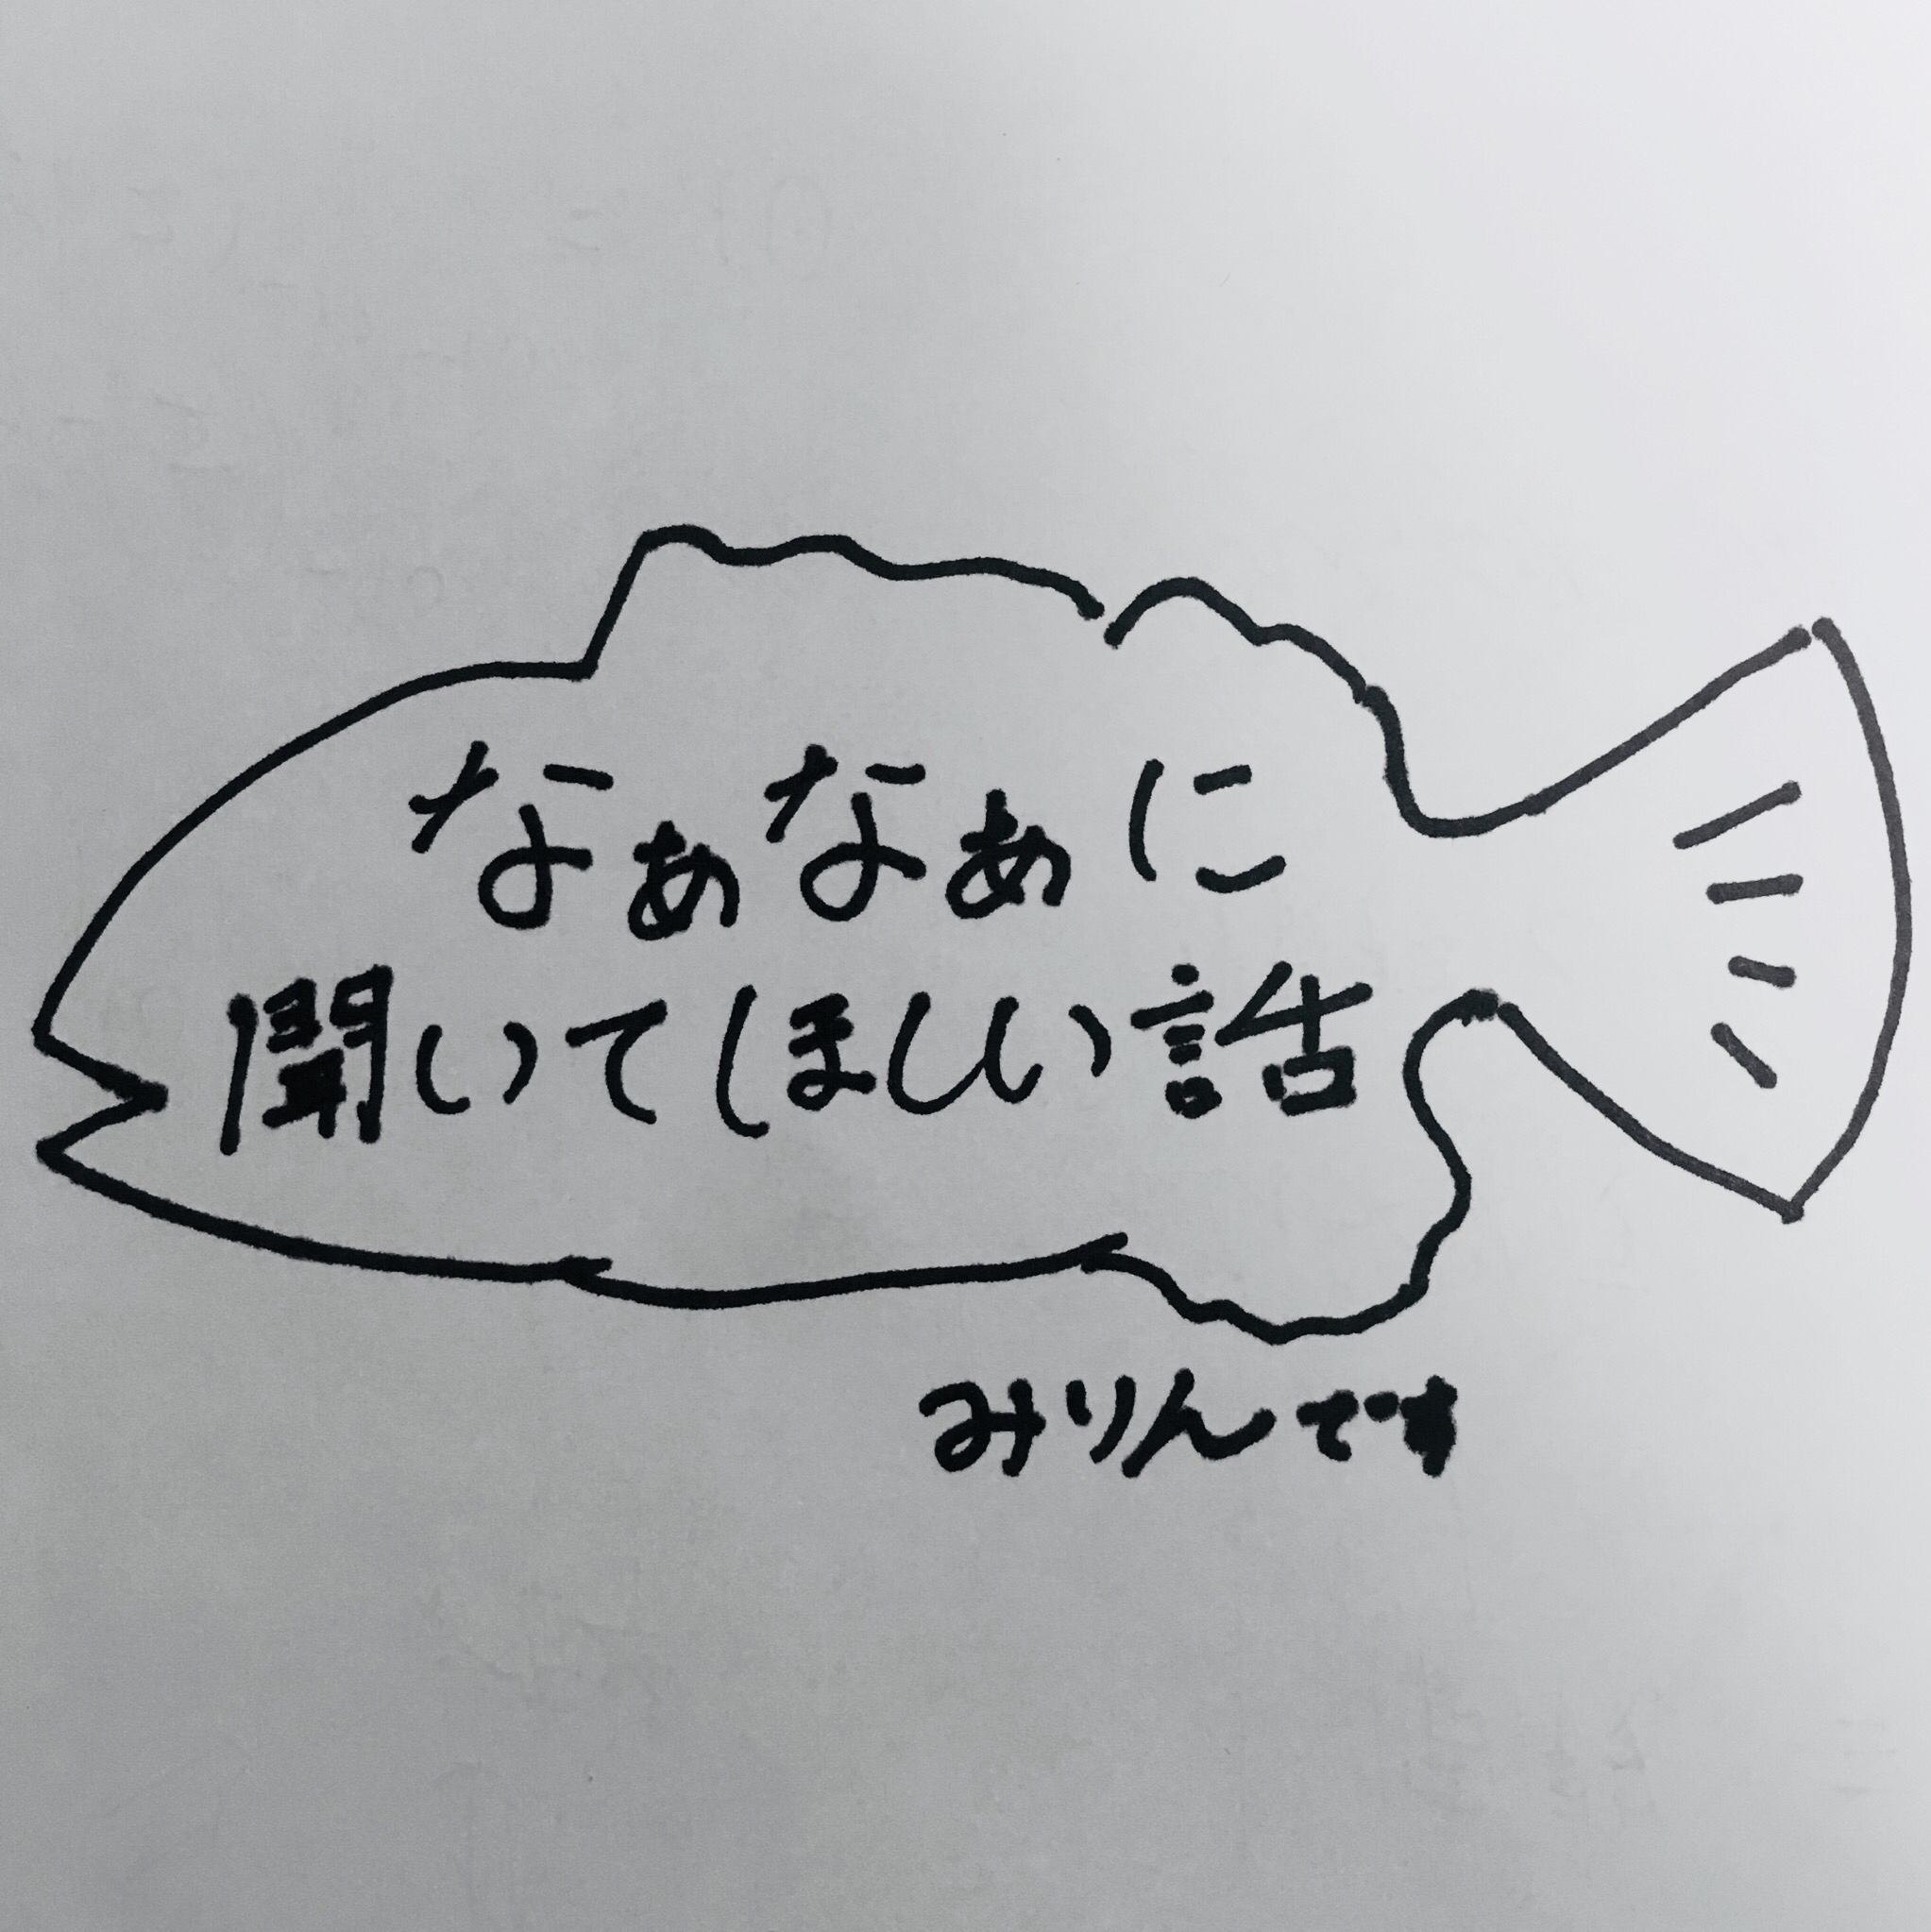 なぁなぁに
聞いてほしい話
みりんです